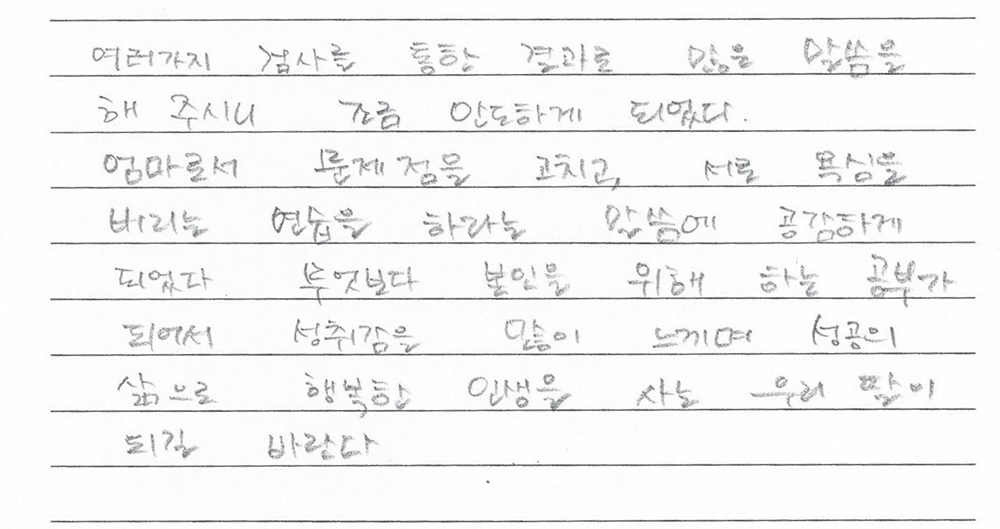 여러가지 검사를 통한 결과로 많은 말씀을
해 주시니 조금 안도하게 되었다.
엄마로서 문제점을 고치고, 서로 욕심을
버리는 연습을 하라는 말씀에 공감하게
되었다 무엇보다 본인을 위해 하는 공부가
되어서 성취감을 많이 느끼며 성공의
삶으로 행복한 인생을 사는 우리 딸이
되길 바란다